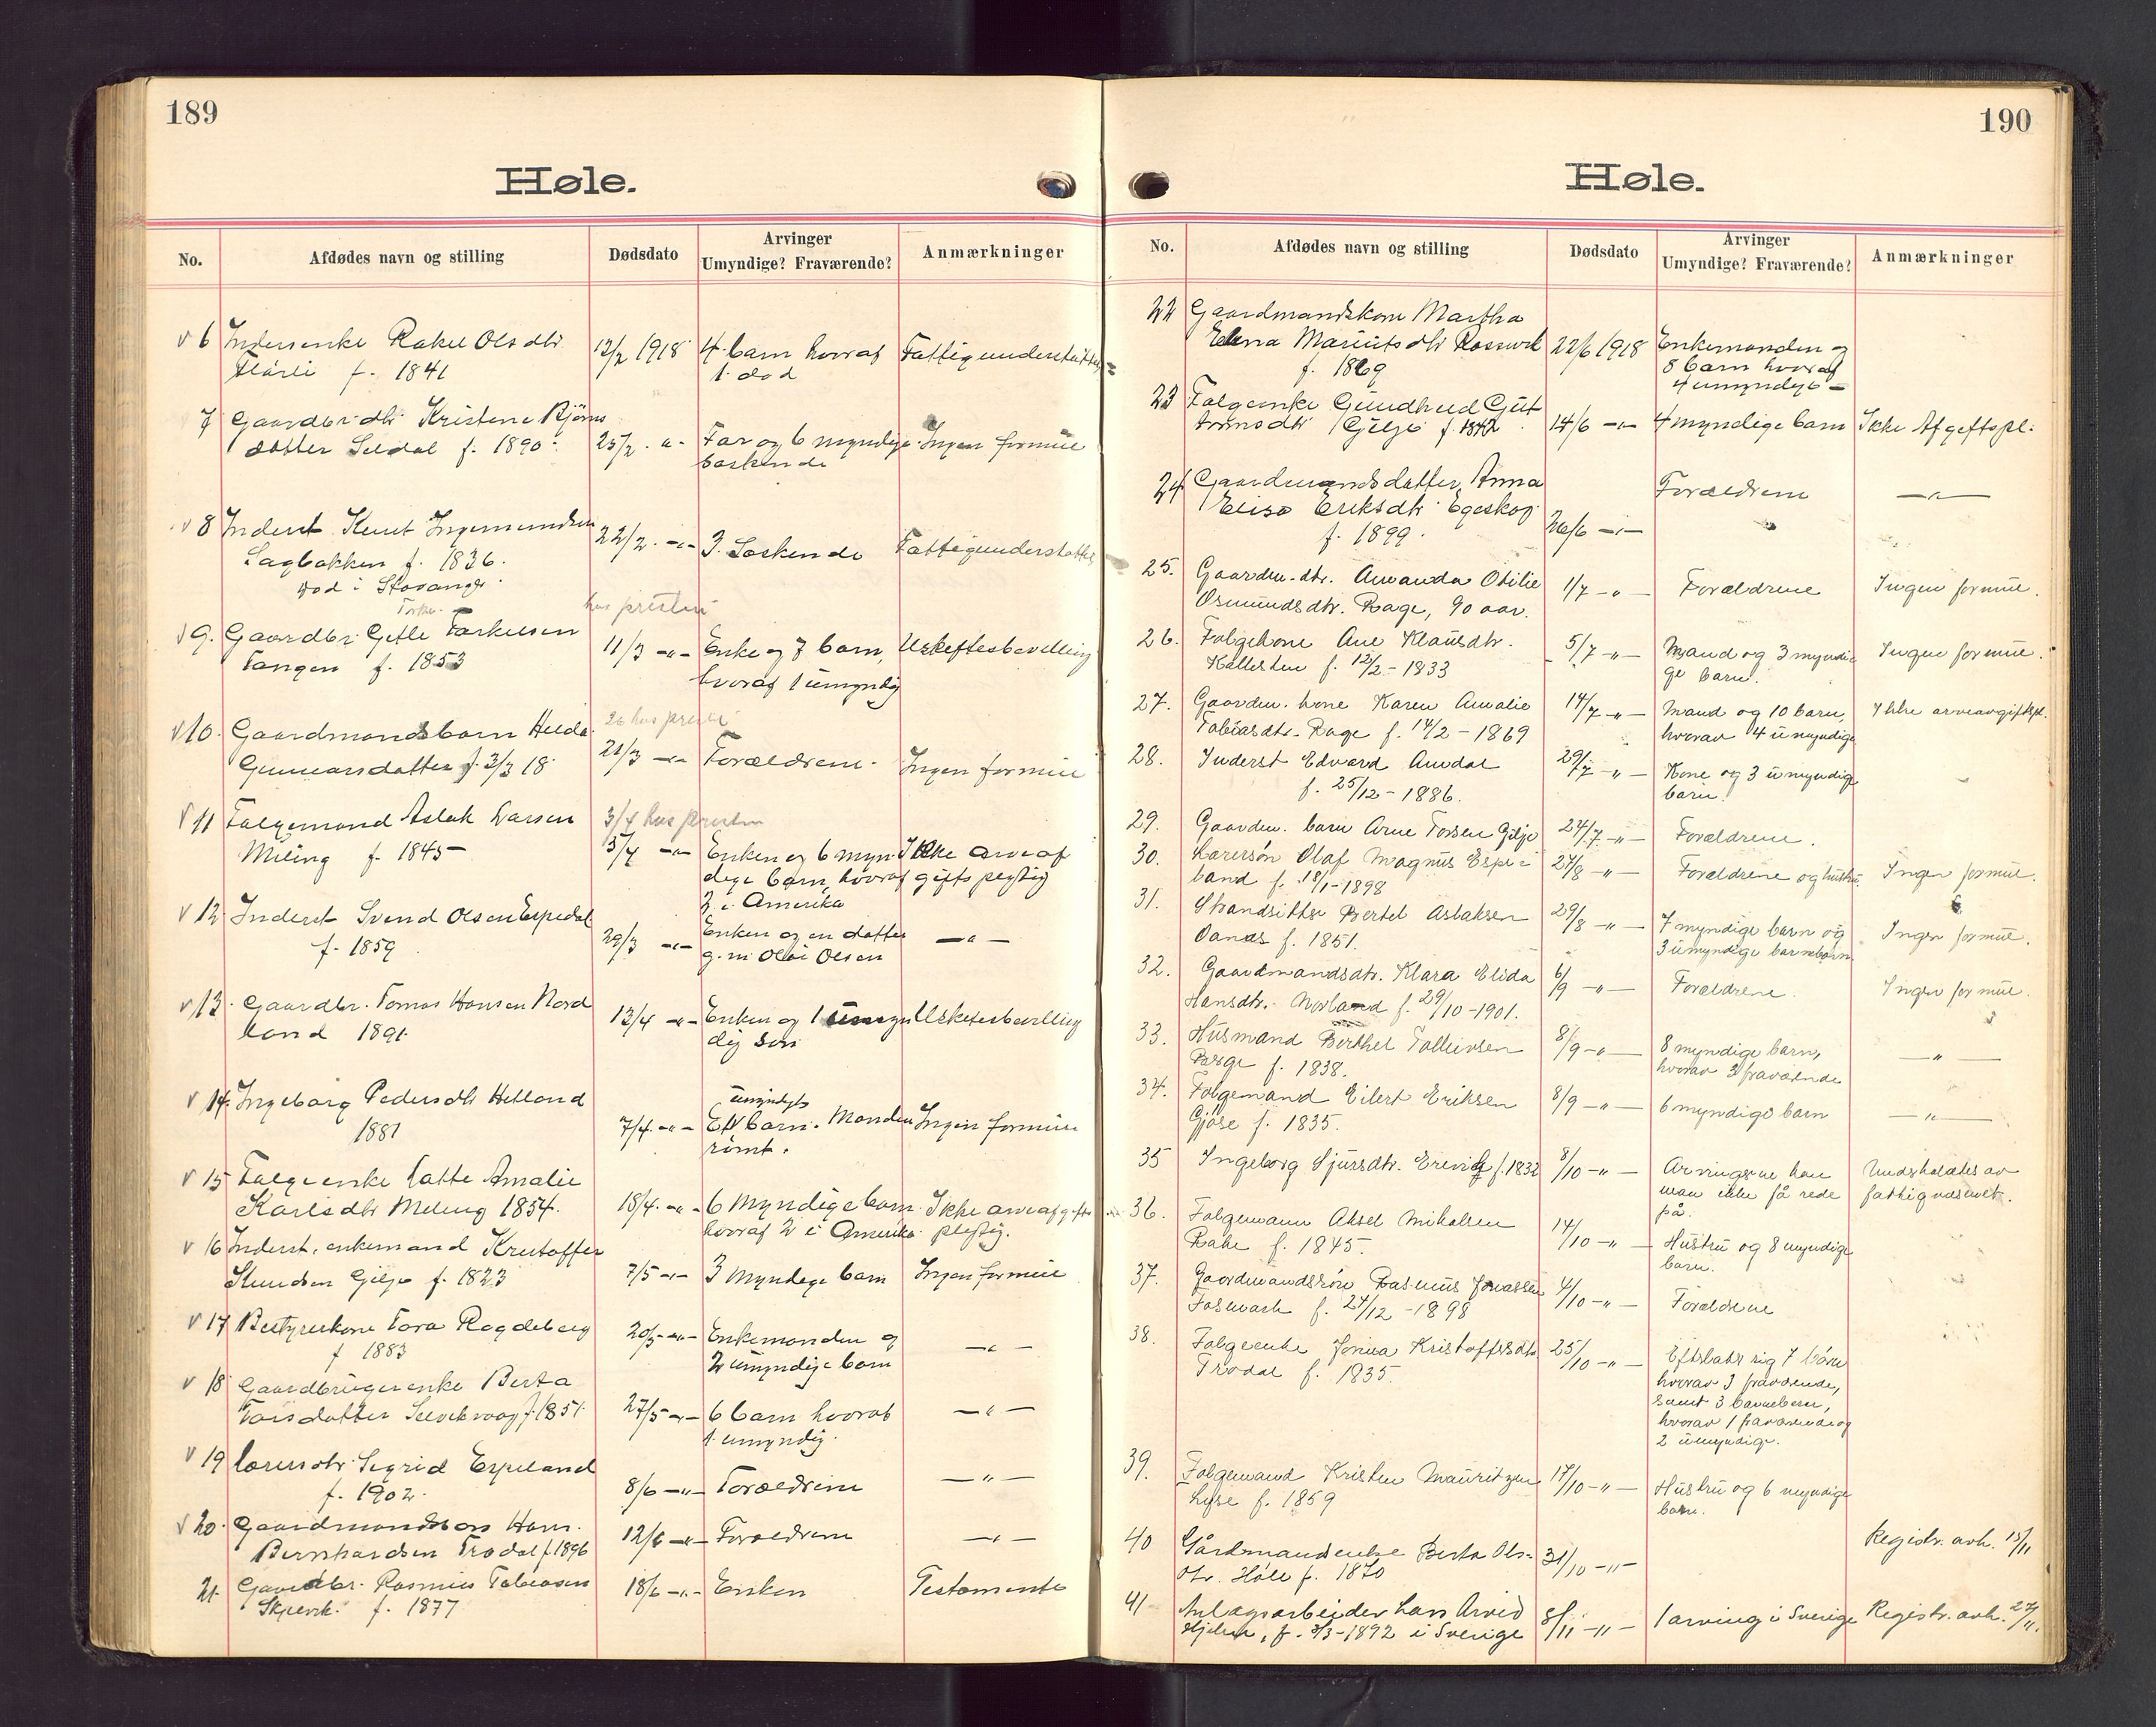 189
Høle.
No. Afdødes navn og stilling Dødsdato Arvinger Umyndige? Fraværende? Anmærkninger
6 Inderstenke Rakel Olsdtr 12/2 1918 4 barn hvoraf Fattigunderstøttet
Flörli f. 1841 1 død
7 Gaardbr.dtr. Kristene Bjørns 25/2 -"- Far og 6 myndige Ingen formue
datter Seldal f. 1890 søskende
8 Inderst Knut Ingemundsen 22/2 -"- 3 Søskende Fattigunderstøttet
Sagbakken f. 1836.
død i Stavanger
hos presten
9. Gaardbr. Torkelsen 11/3 -"- Enke og 7 barn, Uskiftebevilling
Tangen f. 1853 hvoraf 1 umyndig
26 hos presten
10. Gaardmandsbarn Hilda 21/3 -"- Forældrene Ingen formue
Gunnarsdatter f. 3/3 18
3/4 hos presten
11 Følgemand Aslak Larsen 5/4 -"- Enken og 6 myn- Ikke arveaf
Meling f. 1845 dige barn, hvoraf gifts pligtig
2 i Amerika
12 Inderst Svend Olsen Espedal 29/3 -"- Enken og en datter -"-
f. 1859 g. m. Olsen
13. Gaardbr. Tomas Hansen Nord 13/4 -"- Enken og 1 umyn Uskiftebevilling
land 1891 dig søn
14. Ingeborg Pedersdtr Hetland 7/4 -"- Et umyndigt barn. Manden Ingen formue
1881 rømt.
15 Følgeenke Amalie
Karlsdtr Meling 1854. 18/4 -"- 6 myndige barn Ikke arveafgifts
hvoraf 2 i Amerika pligtig.
16 Inderst, enkemand Kristoffer
Knudsen Gilje f. 1823 7/5 -"- 3 myndige barn Ingen formue
17 Bestyrerkone Tora Ragdeberg 20/5 -"- Enkemanden og -"-
f 1883 2 umyndige barn
18 Gaardbrugerenke Berta
Torsdatter f. 1851 27/5 -"- 6 barn hvoraf -"-
1 umyndig.
19 Lærerdtr Sigrid Espeland 8/6 -"- Forældrene -"-
f. 1902.
20. Gaardmandssøn Hans 12/6 -"- Forældrene -"-
Bernhardsen Frødal f. 1896
21. Gaardbr. Rasmus Tobiasen 18/6 -"- Enken Testamente
f. 1877
190
Høle.
No. Afdødes navn og stilling Dødsdato Arvinger Umyndige? Fraværende? Anmærkninger
22 Gaardmandskone Martha
Elena Mauritsdtr 22/6 1918 Enkemanden og
f. 1869 8 barn hvoraf
4 umyndige
23 Følgeenke Gundhild Gut
tormsdtr Gilje f. 1842 14/6 -"- 4 myndige barn Ikke Afgiftspl.
24 Gaardmandsdatter Anna Forældrene -"-
Elisa Eriksdtr Egeskog 26/6 -"-
f. 1899.
25. Gaardm.dtr. Amanda Otilie 1/7 -"- Forældrene Ingen formue.
Osmundsdtr. Rage, 90 aar.
26. Følgekone Ane Klausdtr. 5/7 -"- Mand og 3 myndi Ingen formue.
Kallesten f. 12/2 - 1833 ge barn.
27. Gaardm. kone Karen Amalie 14/7 -"- Mand og 10 barn, Ikke arveavgiftspl.
Tobiasdtr. Rage f. 14/2 - 1869 hvorav 4 umyndige
28. Inderst Edvard Amdal 29/7 -"- Kone og 3 umyndige
f. 25/12 - 1886. barn.
29. Gaardm. barn Arne Torsen Gilje 24/7 -"- Forældrene.
30. Lærersøn Olaf Magnus Espe- 27/8 -"- Forældrene og hustru. Ingen formue.
land f. 18/1-1898
31. Strandsitter Bertel Aslaksen 29/8 -"- 7 myndige barn og Ingen formue.
Oanes f. 1851. 3 umyndige barnebarn
32. Gaardmandsdtr. Klara Elida 6/9 -"- Forældrene Ingen formue.
Hansdtr. Norland f. 29/10-1901.
33. Husmand Berthel Tolleivsen 8/9 -"- 8 myndige barn, -"-
Berge f. 1838. hvorav 3 fraværende
34. Følgemand Eilert Eriksen 8/9 -"- 6 myndige barn -"-
Gjöse f. 1835.
35 Ingeborg Sjursdtr. Erevig f. 1832 8/10 -"- Arvingerne kan Understøttes av
man ikke få rede fattigvæsenet.
på.
36. Følgemann Aksel Mikalsen 14/10 -"- Hustru og 8 myndige
Rake f. 1845. barn.
37. Gaardmandssøn Rasmus Jonassen 4/10 -"- Forældrene
Fosmark f. 24/12 -1898
38. Følgeenke Kristoffersdtr. 25/10 -"- Efterlater sig 7 børn
Frødal f. 1835. hvorav 3 fraværende,
samt 3 barnebarn,
hvorav 1 fraværende og
2 umyndige.
39. Følgemand Kristen Mauritzen 17/10 -"- Hustru og 6 myndige
Lyse f. 1859 barn.
40 Gårdmandsenke Berta Ols- 31/10 -"- Registr. avh. 15/11
dtr. Høle f. 1870
41 Anlægsarbeider Lars Arvid 8/11 -"- 1 arving i Sverige Registr. avh. 27/11.
f. 3/3-1892 i Sverige